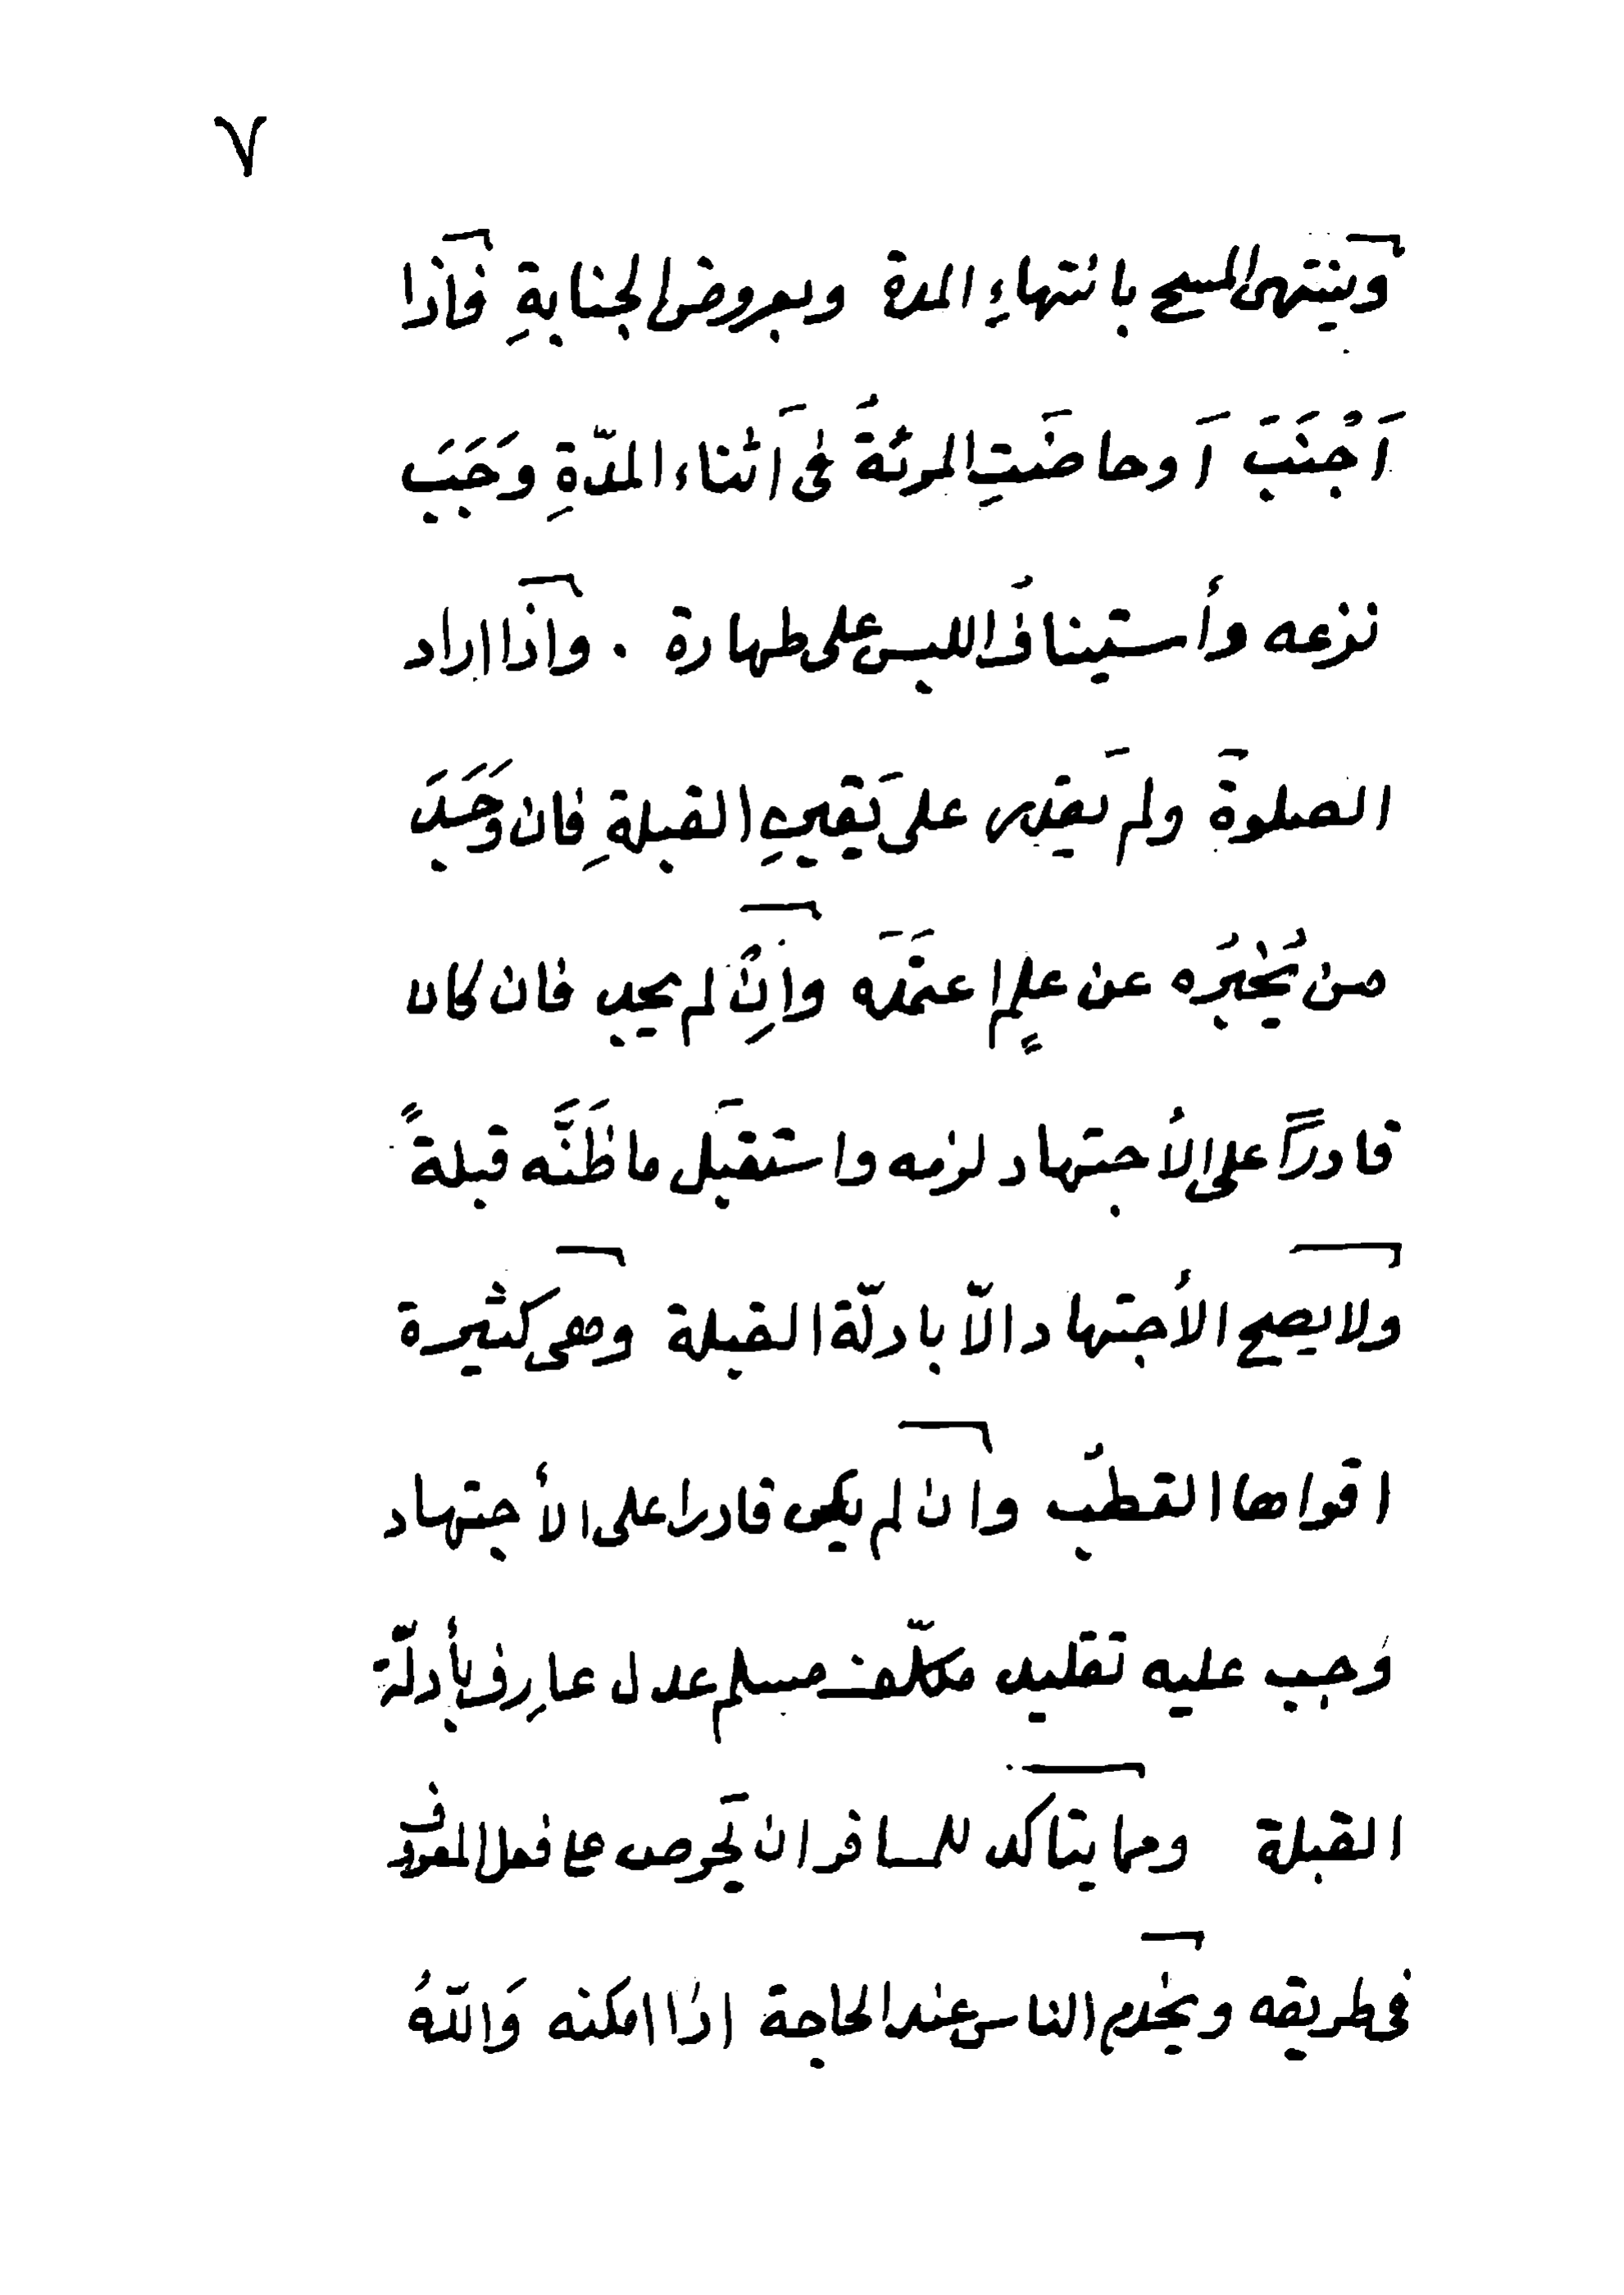 ٧
وينتهى المسح بانتهاءِ المدة وبعروض الجنابةِ فاذا
اَجْنَبَ اَو حاضَتِ المرئةُ فى اَثناء المدّةِ وجَبَ
نزعه وأستينافُ اللبس على طهارة . واذا اراد
الصلوةَ ولم يَقدر على يَقينِ القبلةِ فان وَجَدَ
من يُخبرُه عن علمٍ اعتمَدَه وانْ لم يجد فان كان
قادراً على الأجتهاد لزمه واستقبَل ما ظَنَّه قبلةً
ولا يصح الأجتهاد الّا بادلّة القبلة وهى كثيرة
اقواها القطبُ وان لم يكن قادرا على الأجتهاد
وجب عليه تقليد مكلّف مسلم عدل عارِف بأدلّة
القبلة ومما يتاكد للمسافر ان يَحرص على فعل المعروف
فى طريقه ويخدم الناس عند الحاجة اذا امكنه وَاللّهُ